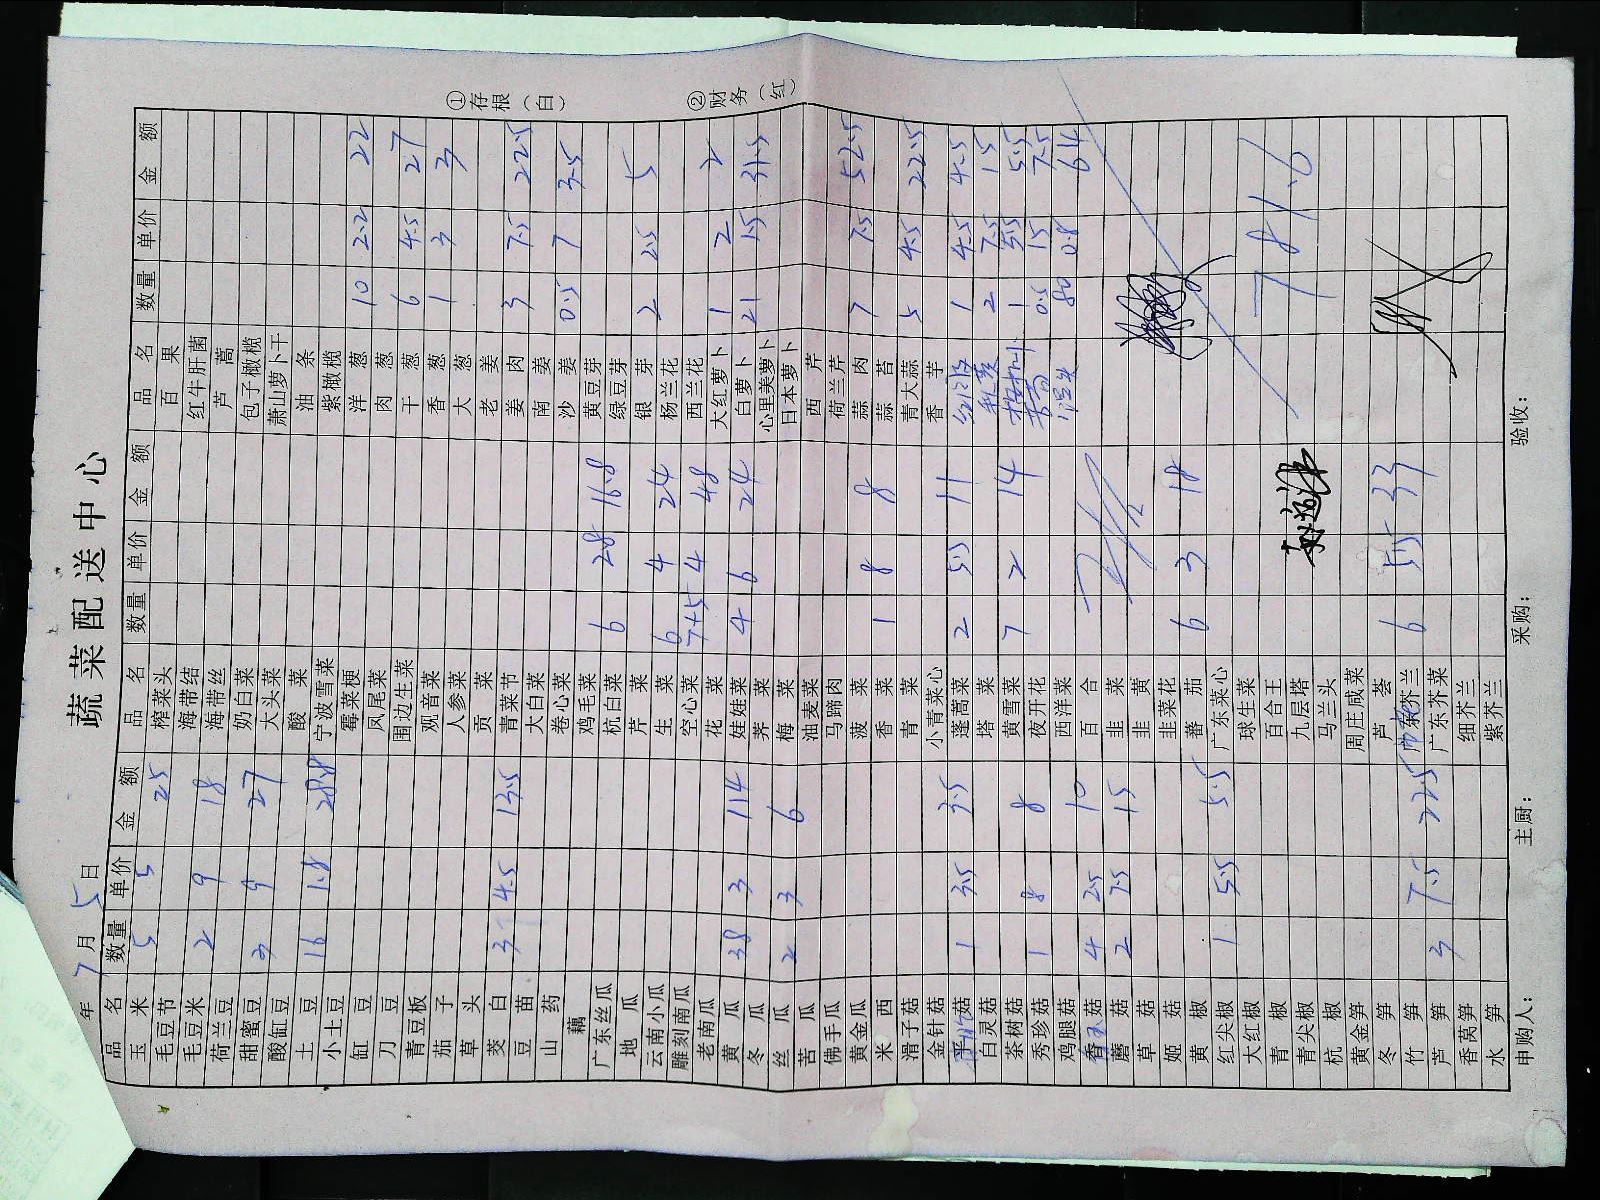 蔬菜配送中心
年 7 月 5 日
品名 数量 单价 金额 品名 数量 单价 金额 品名 数量 单价 金额
玉米 5 5 25 榨菜头 百果
毛豆节 海带结 红牛肝菌
毛豆米 2 9 18 海带丝 芦蒿
荷兰豆 奶白菜 包子橄榄
甜蜜豆 3 9 27 大头菜 萧山萝卜干
酸缸豆 酸菜 油条
土豆 16 1.8 28.8 宁波雪菜 紫橄榄
小土豆 霉菜梗 洋葱 10 2.2 22
缸豆 凤尾菜 肉葱
刀豆 围边生菜 干葱 6 4.5 27
青豆板 观音菜 香葱 1 3 3
茄子 人参菜 大葱
草头 贡菜 老姜
茭白 3 4.5 13.5 青菜节 姜肉 3 7.5 22.5
豆苗 大白菜 南姜
山药 卷心菜 沙姜 0.5 7 3.5
藕 鸡毛菜 黄豆芽
广东丝瓜 杭白菜 6 2.8 16.8 绿豆芽
地瓜 芹菜 银芽 2 2.5 5
云南小瓜 生菜 6 4 24 杨兰花
雕刻南瓜 空心菜 7+5 4 48 西兰花
老南瓜 花菜 大红萝卜 1 2 2
黄瓜 38 3 114 娃娃菜 4 6 24 白萝卜 21 1.5 31.5
冬瓜 荠菜 心里美萝卜
丝瓜 2 3 6 梅菜 日本萝卜
苦瓜 油麦菜 西芹
佛手瓜 马蹄肉 荷兰芹
黄金瓜 菠菜 蒜肉 7 7.5 52.5
米西 香菜 1 8 8 蒜苔
滑子菇 青菜 青大蒜 5 4.5 22.5
金针菇 小青菜心 香芋
菇 1 3.5 3.5 蓬蒿菜 2 5.5 11 1 4.5 4.5
白灵菇 塔菜 2 7.5 15
茶树菇 黄雪菜 7 2 14 1 5.5 5.5
秀珍菇 1 8 8 夜开花 0.5 15 7.5
鸡腿菇 西洋菜 80 0.8 64
香菇 4 2.5 10 百合
蘑菇 2 7.5 15 韭菜
草菇 韭黄
姬菇 韭菜花
黄椒 蕃茄 6 3 18
红尖椒 1 5.5 5.5 广东菜心
大红椒 球生菜
青椒 百合王 781.6
青尖椒 九层塔
杭椒 马兰头
黄金笋 周庄咸菜
冬笋 芦荟
竹笋 芥兰 6 5.5 33
芦笋 3 7.5 22.5 广东芥菜
香莴笋 细芥兰
水笋 紫芥兰
申购人： 主厨： 采购： 验收：
①存根（白）
②财务（红）